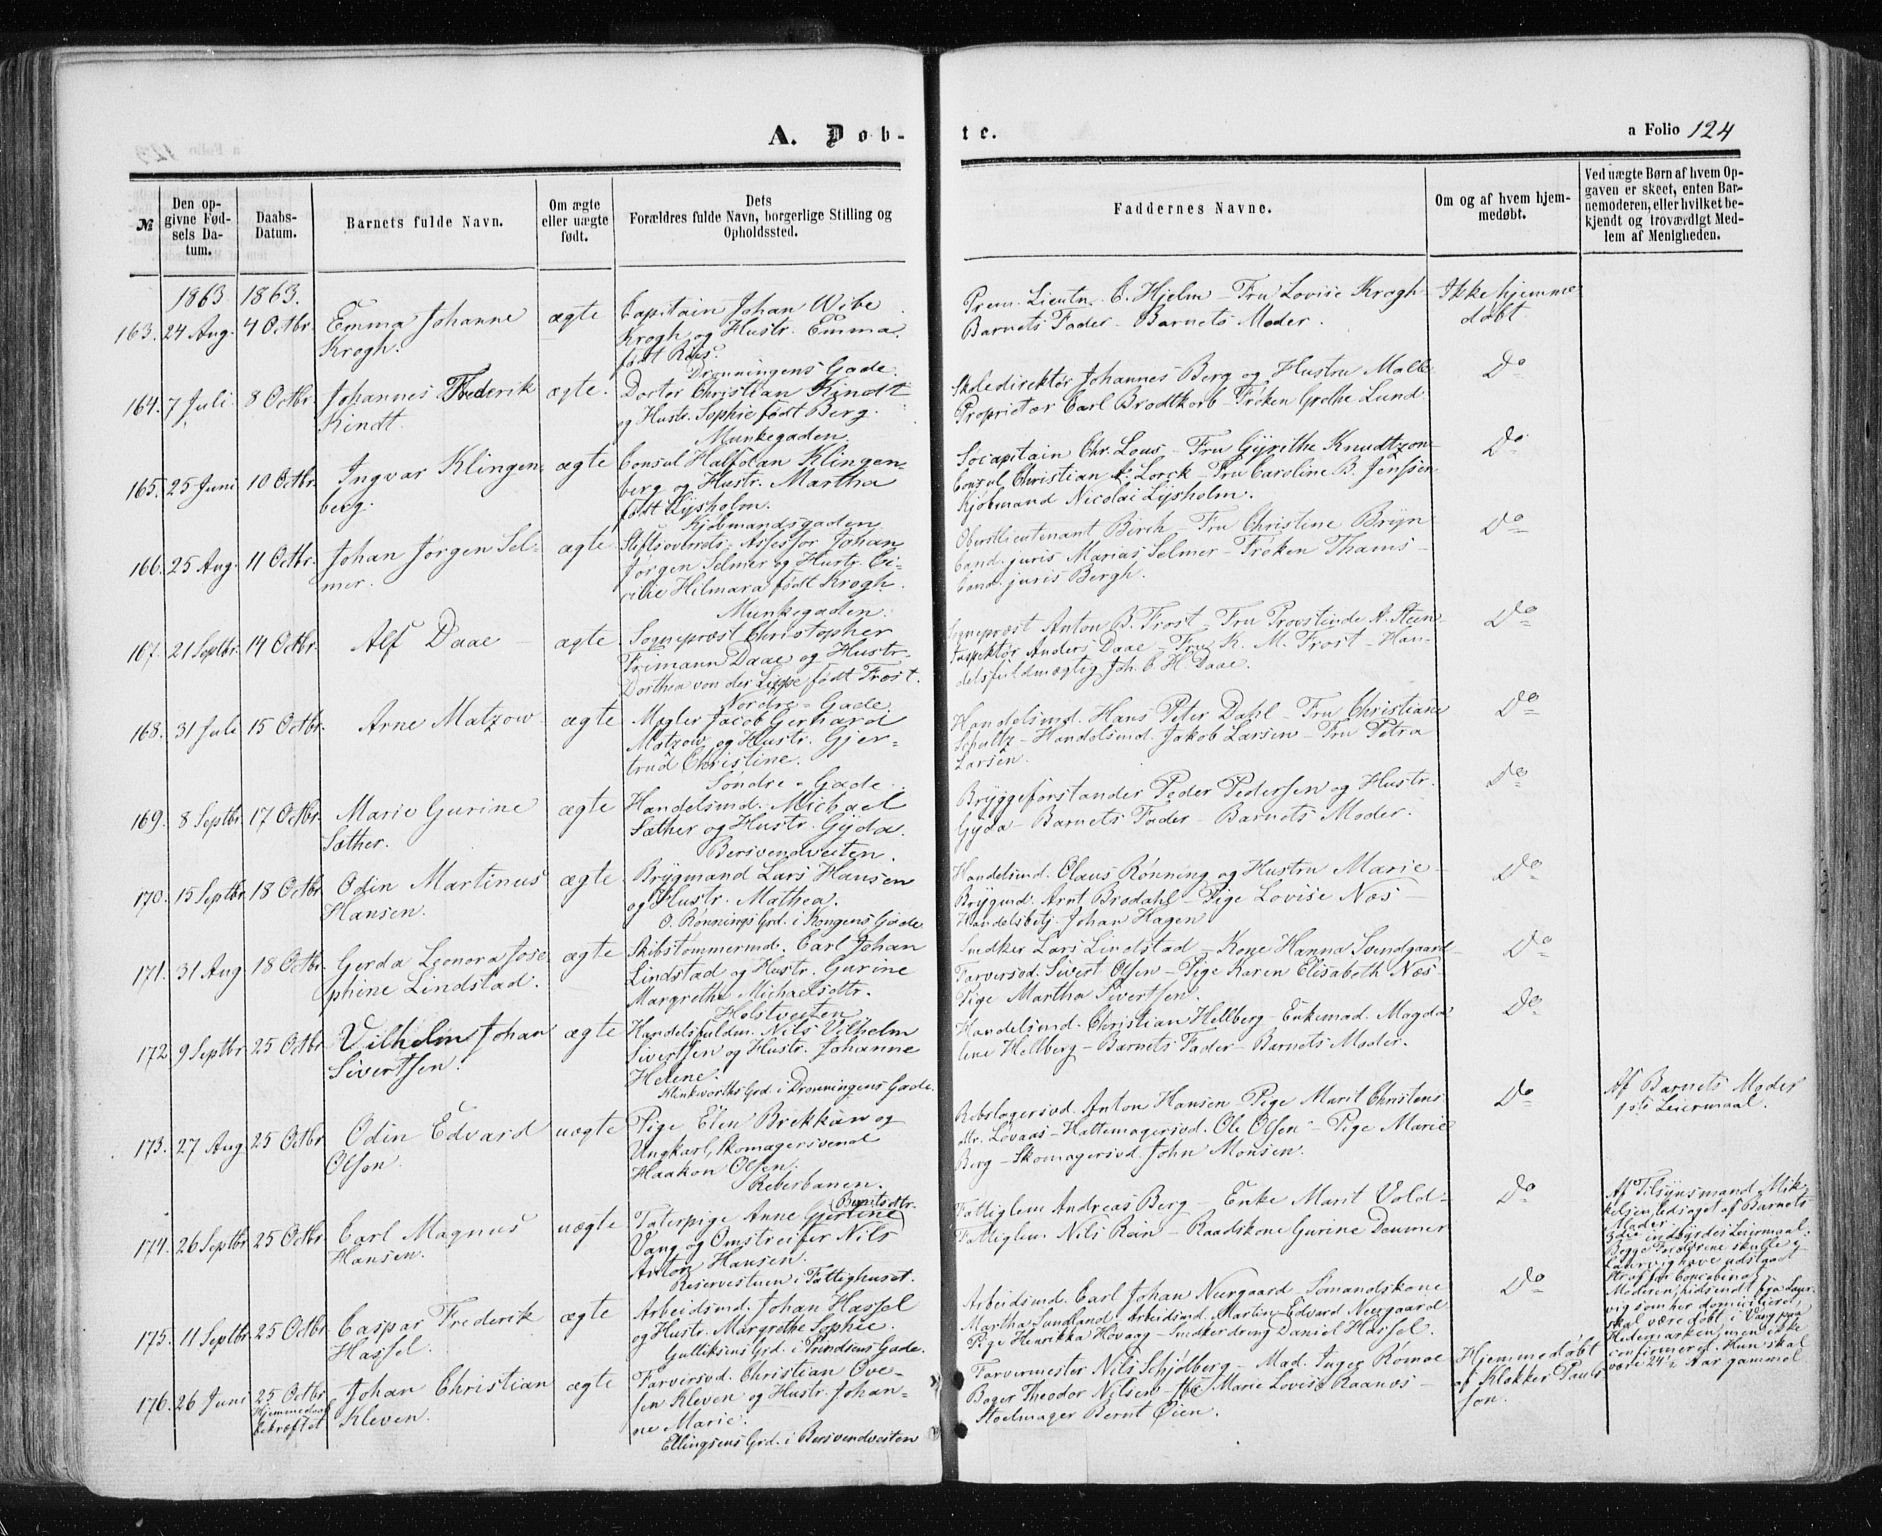 A. Døb-
te.
a Folio 124
№
Den op-
givne Fød-
sels Da-
tum.
Daabs-
Datum.
Barnets fulde Navn.
Om ægte
eller uægte
født.
Dets
Forældres fulde Navn, borgerlige Stilling og
Opholdssted.
Faddernes Navne.
Om og af hvem hjem-
medøbt.
Ved uægte Børn af hvem Op-
gaven er skeet, enten Bar-
nemoderen, eller hvilket be-
kjendt og troværdigt Med-
lem af Menigheden.
1863 1863.
163. 24 Aug. 4 Octbr. Emma Johanne
Krogh.
ægte
Capitain Johan Wibe
Krogh og Hustr. Emma
født Roes.
Dronningens Gade.
Prem. Lieutn. C. Hjelm - Fru Lovise Krogh
Barnets Fader - Barnets Moder.
Ikke hjemme
døbt
164. 7 Juli 8 Octbr. Johannes Frederik
Kindt.
ægte.
Doctor Christian Kindt
og Hustr. Sophie født Berg.
Munkegaden.
Skoledirektør Johannes Berg og Hustru Malle
Proprietær Carl Brodtkorb - Frøken Grethe Lund.
Do
165. 25 Juni 10 Octbr. Ingvar Klingen-
berg.
ægte
Consul Halfdan Klingen-
berg og Hustr. Martha
født Lysholm.
Kjøbmandsgaden.
Søcapitain Chr. Lous - Fru Gyrithe Knudtzon
Consul Christian Lorck - Fru Caroline B. Jenssen
Kjøbmand Nicolai Lysholm.
Do
166. 25 Aug. 11 Octbr. Johan Jørgen Sel-
mer.
ægte
Stiftsoverrets-Assessor Johan
Jørgen Selmer og Hustr. Ci-
cilie Hilmara født Krogh.
Munkegaden.
Oberstlieutenant Birch - Fru Christine Bryn
Cand. juris Marius Selmer - Frøken Thams -
Cand. juris Bergh.
Do
167. 21 Septbr. 14 Octbr. Alf Daae
ægte
Sognepræst Christopher
Frimann Daae og Hustr.
Dorthea von der Lippe født Frost.
Nordre-Gade.
Sognepræst Anton B. Frost - Fru Provstinde A. Steen
Inspektør Anders Daae - Fru K. M. Frost - Han-
delsfuldmægtig Joh. C. H. Daae.
Do
168. 31 Juli 15 Octbr. Arne Matzow
ægte
Mægler Jacob Gerhard
Matzow og Hustr. Gjer-
trud Christine.
Søndre-Gade.
Handelsmd. Hans Peter Dahl - Fru Christiane
Schultz - Handelsmd. Jakob Larsen - Fru Petra
Larsen.
Do
169. 8 Septbr. 17 Octbr. Marie Gurine
Sæther.
ægte
Handelsmd. Michael
Sæther og Hustr. Gyda.
Bersvendveiten.
Bryggeforstander Peder Pedersen og Hustr.
Gyda - Barnets Fader - Barnets Moder.
Do
170. 15 Septbr. 18 Octbr. Odin Martinus
Hansen.
ægte
Brygmand Lars Hansen
og Hustr. Mathea.
O. Rønnings Grd. i Kongens Gade
Handelsmd. Olaus Rønning og Hustru Marie -
Brygmd. Arnt Brodahl - Pige Lovise Næs -
Handelsbetj. Johan Hagen
Do
171. 31 Aug 18 Octbr. Gerda Leonora Jose-
phine Lindstad.
ægte
Skibstømmermd. Carl Johan
Lindstad og Hustr. Gurine
Margrethe Michaelsdtr.
Holstveiten
Snedker Lars Lindstad - Kone Hanna Sundgaard
Farversvd. Sivert Olsen - Pige Karen Elisabeth Næs -
Pige Martha Sivertsen.
Do
172 9 Septbr 25 Octbr Vilhelm Johan
Sivertsen.
ægte
Handelsfuldm. Nils Vilhelm
Sivertsen og Hustr. Johanne
Helene.
Klinkworths Grd. i Dronningens Gade.
Handelsmd. Christian Hellberg - Enkemad. Magda
lene Hellberg - Barnets Fader - Barnets Moder.
Do
173. 27 Aug 25 Octbr Odin Edvard
Olsen.
uægte
Pige Elen Brekkan og
Ungkarl, Skomagersvend
Haakon Olsen.
Reberbanen.
Rebslagersvd. Anton Hansen - Pige Marit Christens
dtr. Lovaas - Hattemagersvd. Ole Olsen - Pige Marie
Berg - Skomagersvd. John Monsen.
Do
Af Barnets Moder
1ste Leiermaal.
174. 26 Septbr 25 Octbr. Carl Magnus
Hansen.
uægte
Taterpige Anne Gjertine Berntsdtr.
Vang og Omstreifer Nils
Anton Hansen.
Reservestuen i Fattighuset.
Fattiglem Andreas Berg - Enke Marit Vold -
Fattiglem. Nils Rein - Raadskone Gurine Demmer
Do
Af Tilsynsmand Mik-
kelsen, ledsaget af Barnets
Moder.
2die indbyrdes Leiermaal.
Begge Forældrene skulle i
Laurvig have udstaaet
Straf for Concubinat.
Moderen, hidsendt fra Laur-
vig som her domicileret,
skal være døbt i Vang paa
Hedemarken, men ikke
confirmeret. Hun skal
være 24½ Aar gammel
175. 11 Septbr 25 Octbr. Caspar Frederik
Hassel.
ægte
Arbeidsmd. Johan Hassel
og Hustr. Margrethe Sophie.
Gulliksens Grd. i Prindsens Gade.
Arbeidsmd. Carl Johan Neergaard Sømandskone
Martha Sundland. Arbeidsmd. Martin Edvard Neergaard
Pige Henrikka Hovaag - Snedkerdreng Daniel Hassel.
Do
176. 26 Juni 25 Octbr
Hjemmedaab
bekræftet
Johan Christian
Kleven.
ægte
Farversvd. Christian Ove-
sen Kleven og Hustr. Johan-
ne Marie.
Ellingsens Grd. i Bersvendveiten
Farvermester Nils Schjølberg - Mad. Inger Rømoe
Bager Theodor Nilsen - Marie Lovise Raanæs -
Stoelmager Bernt Øien.
Hjemmedøbt
af Klokker Pauls
sen.